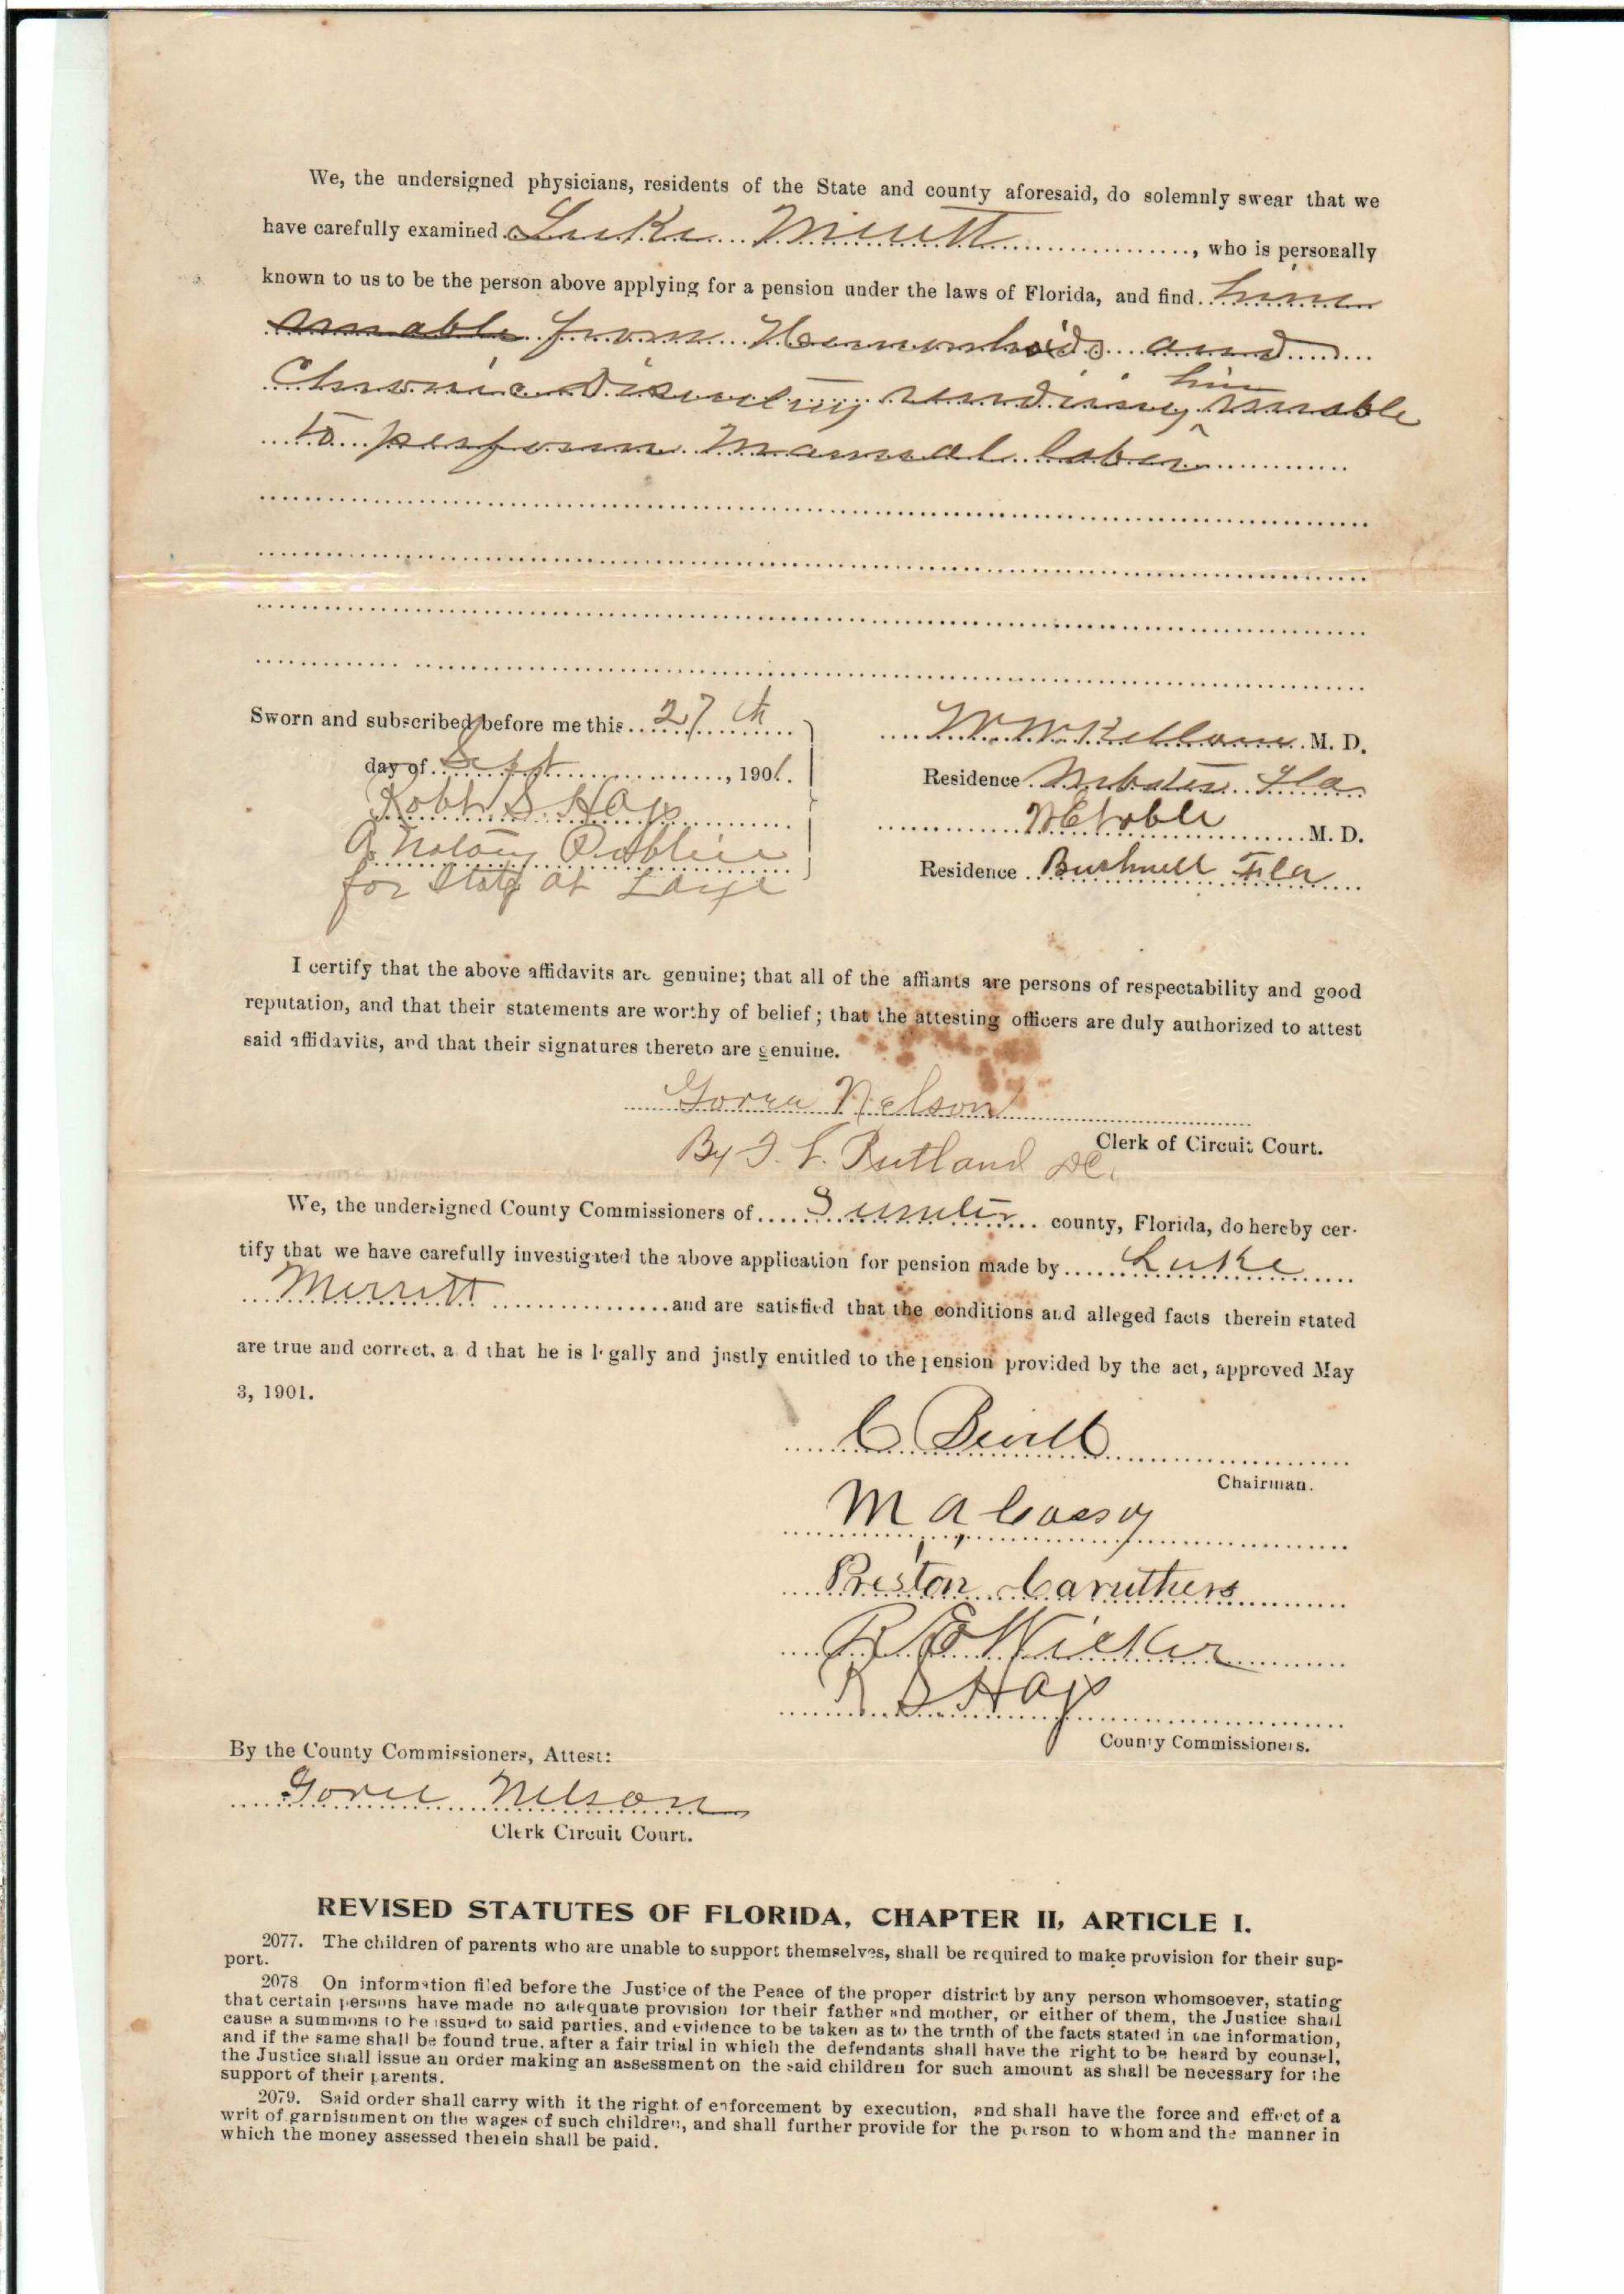 We, the undersigned physicians, residents of the State and county aforesaid, do solemnly swear that we
have carefully examined Luke Merritt, who is personally
known to us to be the person above applying for a pension under the laws of Florida, and find him
unable from Hemorrhoids and
Chronic Disentery rendering him unable
to perform manual labor
Sworn and subscribed before me this 27th
day of Sept, 1901.
Robt S. Hay
A Notary Publiic
for State at Large
W. W. M. D.
Residence Webster Fla
M. D.
Residence Bushnell Fla
I certify that the above affidavits are genuine; that all of the affiants are persons of respectability and good
reputation, and that their statements are worthy of belief; that the attesting officers are duly authorized to attest
said affidavits, and that their signatures thereto are genuine.
Nelson
Clerk of Circuit Court.
By Rutland DC.
We, the undersigned County Commissioners of Sumter county, Florida, do hereby cer-
tify that we have carefully investigated the above application for pension made by Luke
Merritt and are satisfied that the conditions and alleged facts therein stated
are true and correct, and that he is legally and justly entitled to the pension provided by the act, approved May
3, 1901.
C Bevill
Chairman.
M A Cassy
Preston Caruthers
R E Wicker
R S Hay
County Commissioners.
By the County Commissioners, Attest:
Nelson
Clerk Circuit Court.
REVISED STATUTES OF FLORIDA, CHAPTER II, ARTICLE I.
2077. The children of parents who are unable to support themselves, shall be required to make provision for their sup-
port.
2078 On information filed before the Justice of the Peace of the proper district by any person whomsoever, stating
that certain persons have made no adequate provision for their father and mother, or either of them, the Justice shall
cause a summons to be issued to said parties, and evidence to be taken as to the truth of the facts stated in the information,
and if the same shall be found true, after a fair trial in which the defendants shall have the right to be heard by counsel,
the Justice shall issue an order making an assessment on the said children for such amount as shall be necessary for the
support of their parents.
2079. Said order shall carry with it the right of enforcement by execution, and shall have the force and effect of a
writ of garnishment on the wages of such children, and shall further provide for the person to whom and the manner in
which the money assessed therein shall be paid.